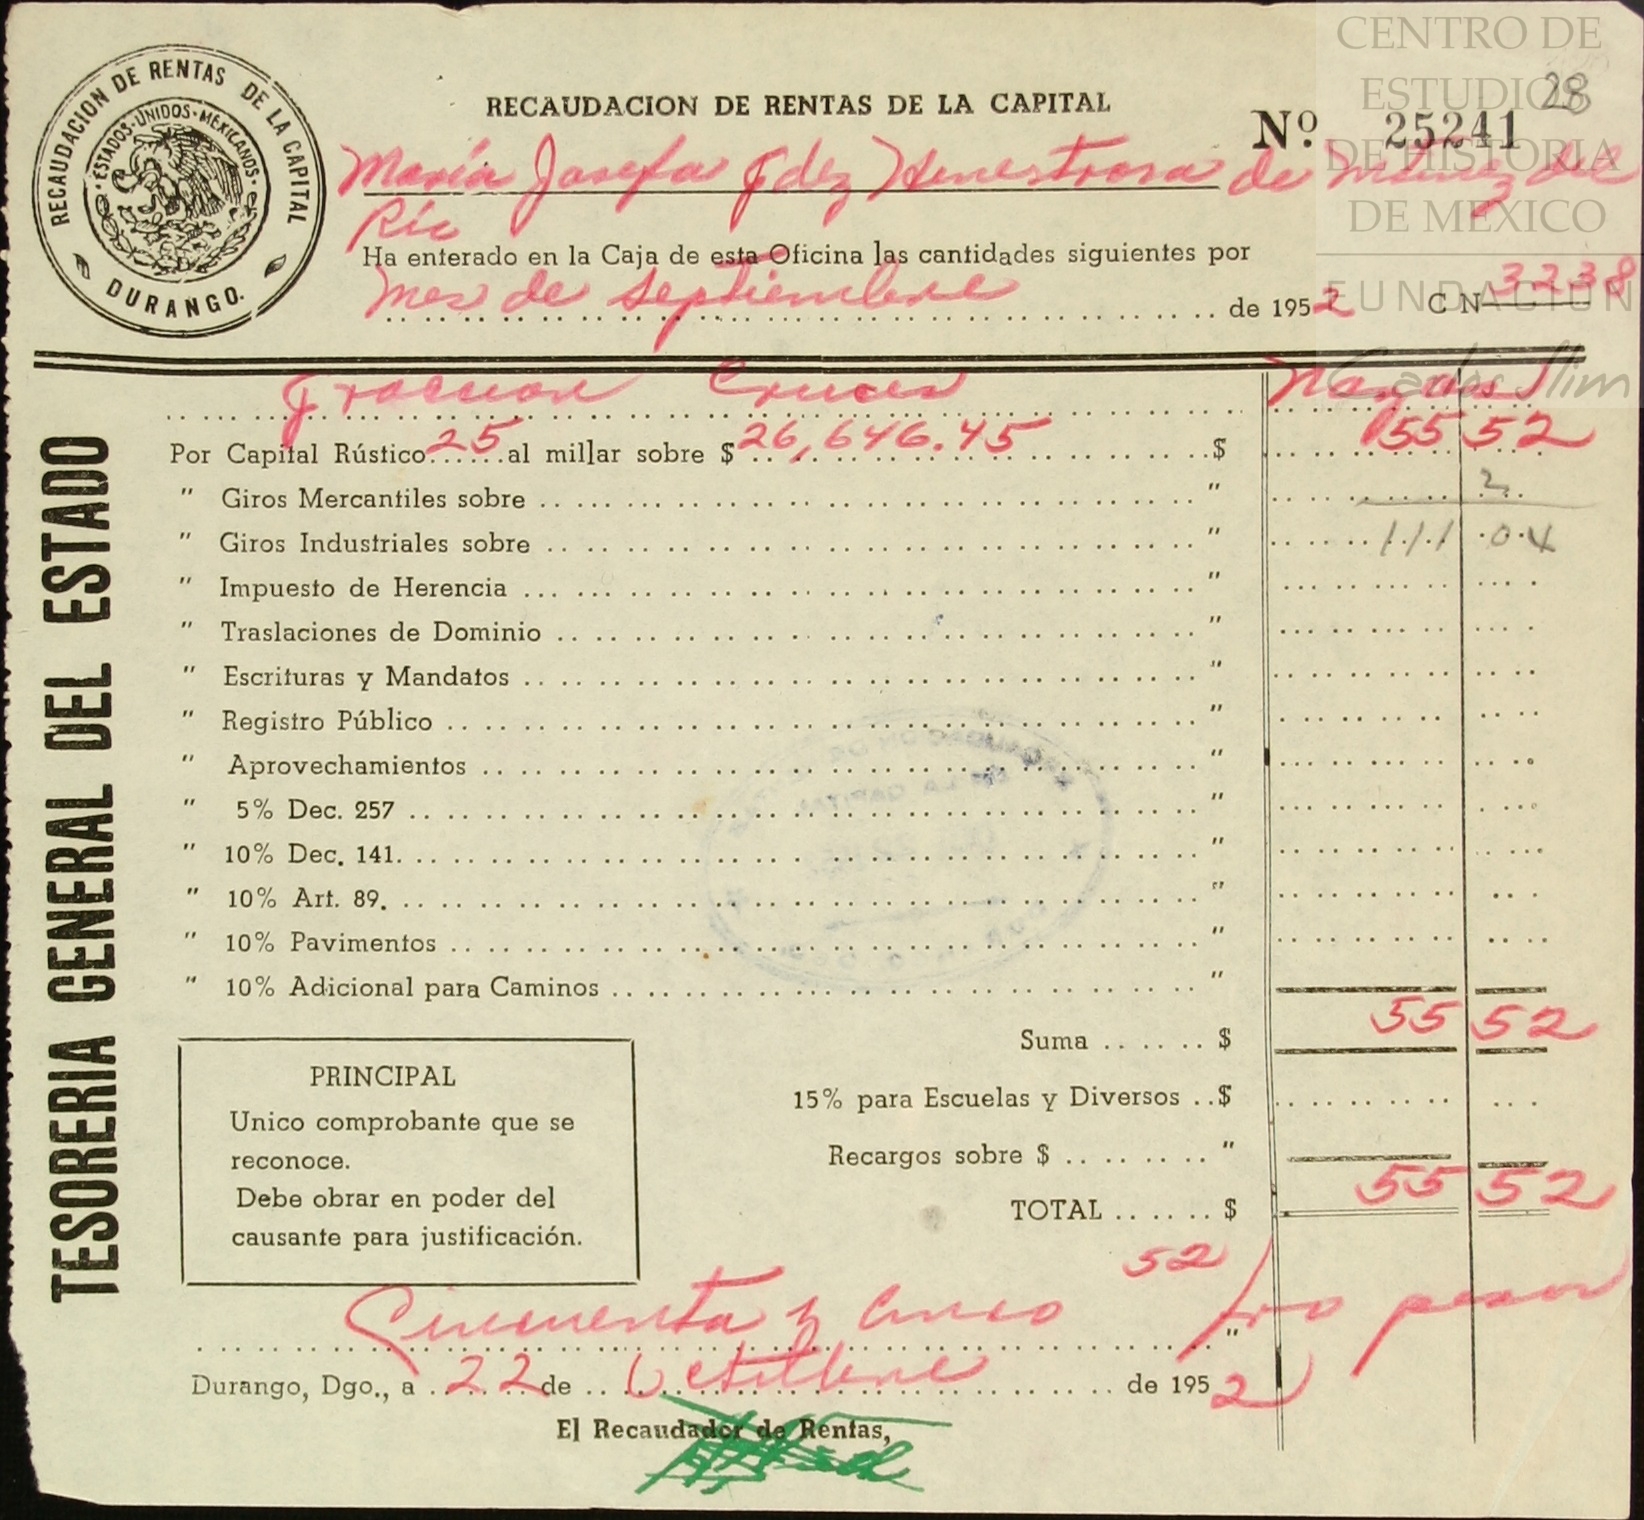 CENTRO DE
ESTUDIOS
DE HISTORIA
DE MEXICO
FUNDACION
Carlos Slim
28
RECAUDACION DE RENTAS DE LA CAPITAL
ESTADOS·UNIDOS·MEXICANOS
DURANGO.
RECAUDACION DE RENTAS DE LA CAPITAL
Nº 25241
María Josefa Fdez Henestrosa de Mtnez del
Río
Ha enterado en la Caja de esta Oficina las cantidades siguientes por
mes de septiembre de 1952 C N 3238
TESORERIA GENERAL DEL ESTADO
fraccion Cruces
Por Capital Rústico 25 al millar sobre $ 26,646.45 $ 55 52
" Giros Mercantiles sobre " 2
" Giros Industriales sobre " 111 04
" Impuesto de Herencia "
" Traslaciones de Dominio "
" Escrituras y Mandatos "
" Registro Público "
" Aprovechamientos "
" 5% Dec. 257 "
" 10% Dec. 141. "
" 10% Art. 89. "
" 10% Pavimentos "
" 10% Adicional para Caminos "
Suma $ 55 52
15% para Escuelas y Diversos $
Recargos sobre $ "
TOTAL $ 55 52
PRINCIPAL
Unico comprobante que se
reconoce.
Debe obrar en poder del
causante para justificación.
Cincuenta y cinco 52/100 pesos "
Durango, Dgo., a 22 de Octubre de 1952
El Recaudador de Rentas,